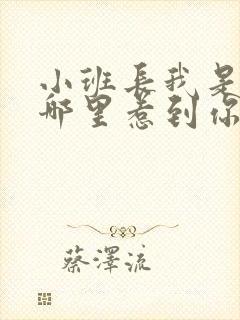 小班長我是
哪里惹到你
蔡澤流